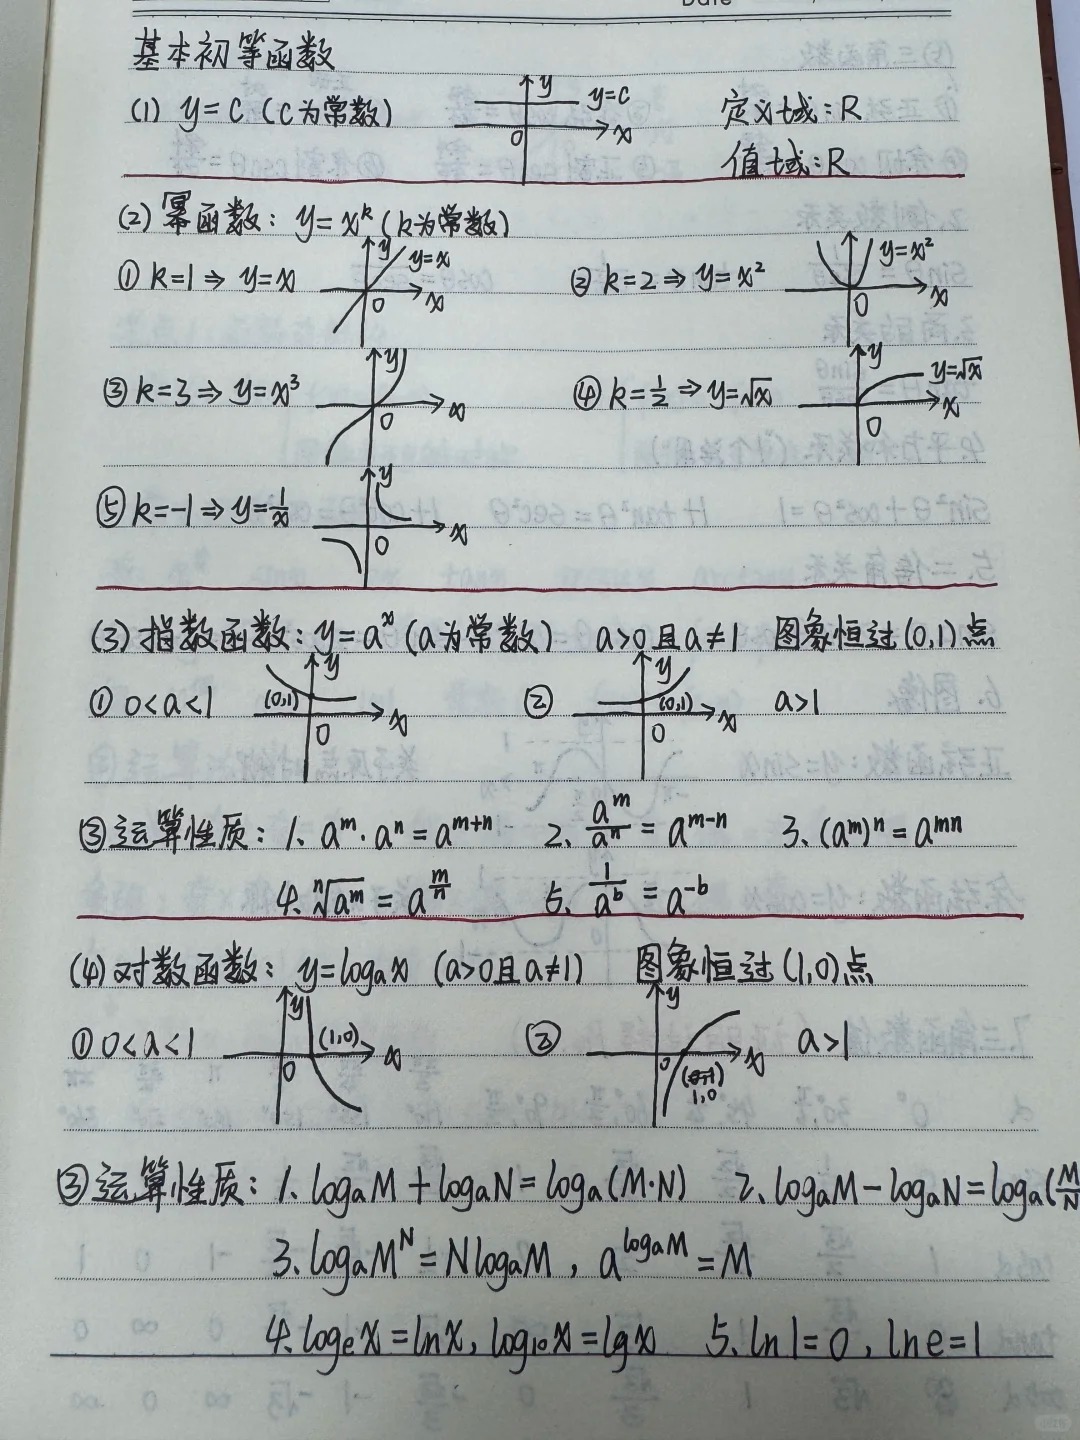 Date
基本初等函数
(1) y=C (C为常数) y y=C x 0 定义域:R
值域:R
(2) 幂函数: y=x^k (k为常数)
① k=1 ⇒ y=x y y=x x 0 ② k=2 ⇒ y=x² y=x² x 0
③ k=3 ⇒ y=x³ y x 0 ④ k=1/2 ⇒ y=√x y y=√x x 0
⑤ k=-1 ⇒ y=1/x y x 0
(3) 指数函数: y=a^x (a为常数) a>0且a≠1 图象恒过(0,1)点
① 0<a<1 (0,1) y x 0 ② y (0,1) x 0 a>1
③ 运算性质: 1. a^m·a^n=a^(m+n) 2. a^m/a^n=a^(m-n) 3. (a^m)^n=a^(mn)
4. ⁿ√(a^m)=a^(m/n) 5. 1/a^b=a^(-b)
(4) 对数函数: y=logₐx (a>0且a≠1) 图象恒过(1,0)点
① 0<a<1 y (1,0) x 0 ② y x 0 a>1
1,0
③ 运算性质: 1. logₐM+logₐN=logₐ(M·N) 2. logₐM-logₐN=logₐ(M/N
3. logₐM^N=NlogₐM, a^(logₐM)=M
4. logₑx=lnx, log₁₀x=lgx 5. ln1=0, lne=1